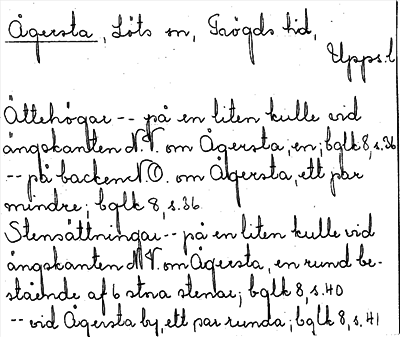 Ågersta, Löts sn, Trögds hd,
Upps. l
Ättehögar -- på en liten kulle vid
ängskanten N.V. om Ågersta, en; bglk 8, s.36
-- på backen N.O. om Ågersta, ett par
mindre; bglk 8, s.36
Stensättningar -- på en liten kulle vid
ängskanten N.V. om Ågersta, en rund be-
stående af 6 stora stenar; bglk 8, s.40
-- vid Ågersta by, ett par runda; bglk 8, s.41